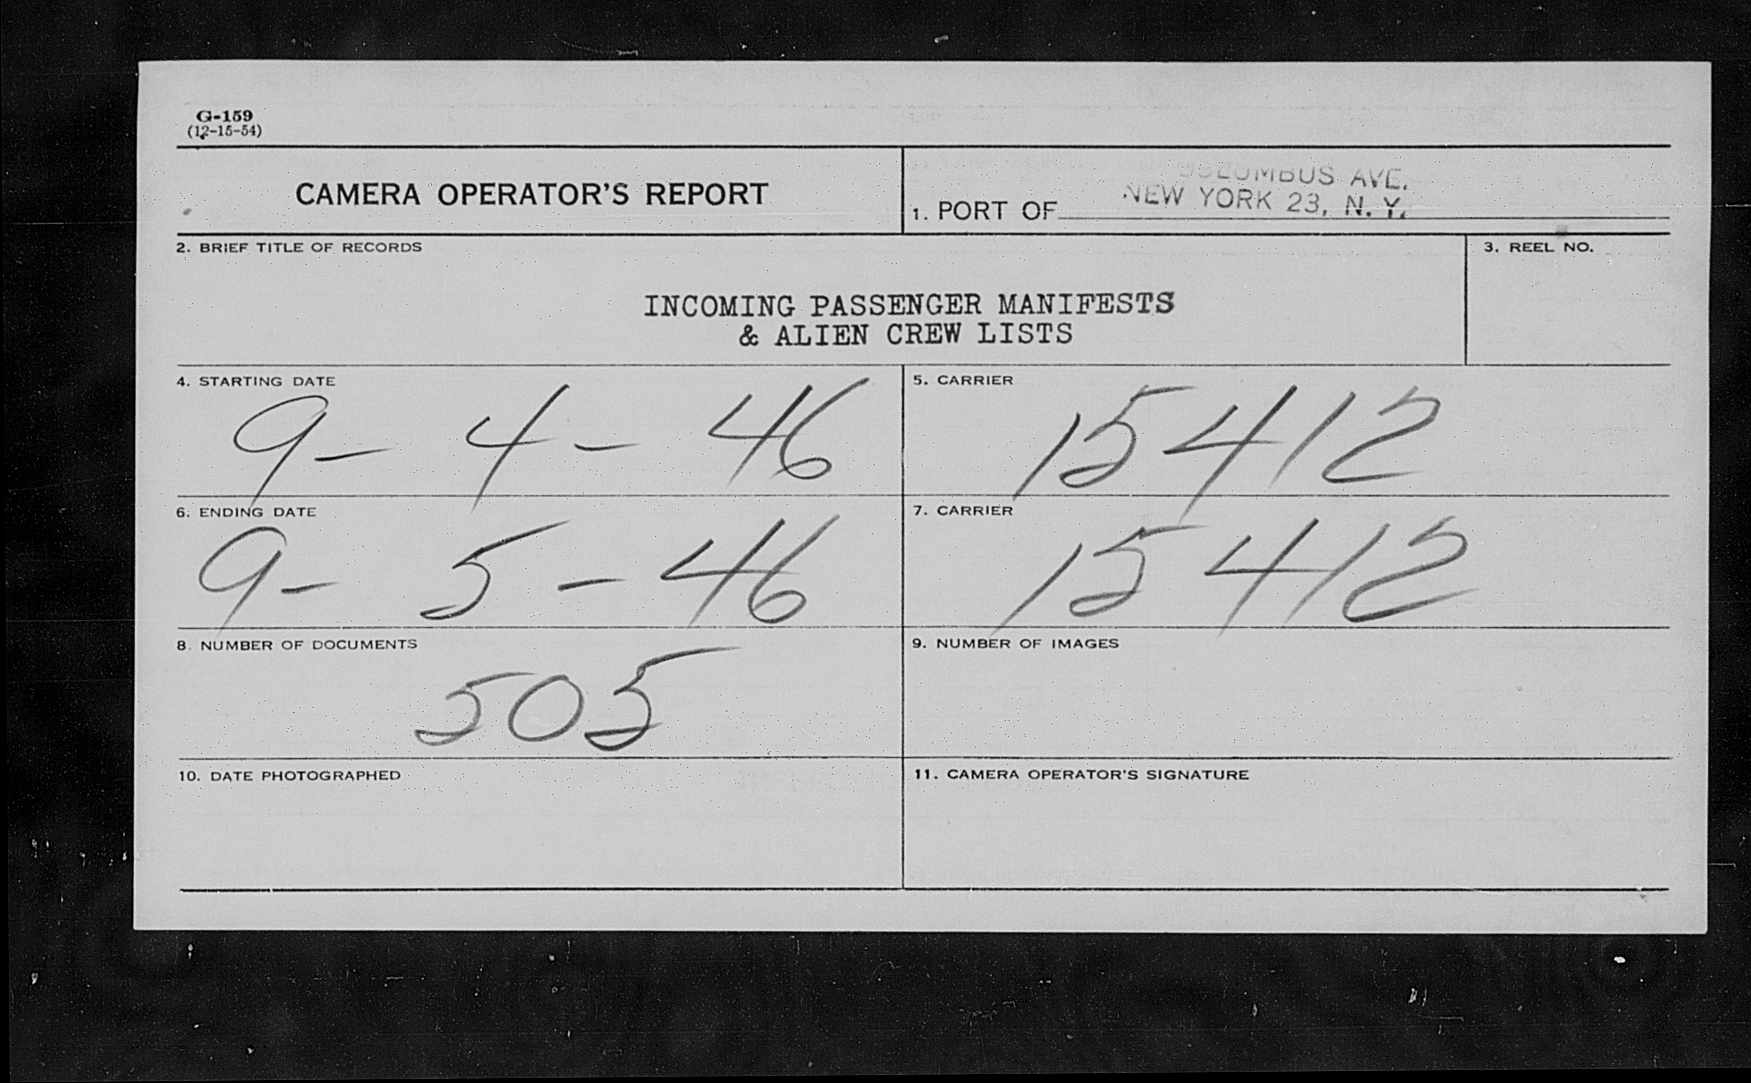 G-159
(12-15-54)
CAMERA OPERATOR'S REPORT
COLUMBUS AVE.
1. PORT OF NEW YORK 23, N. Y.
2. BRIEF TITLE OF RECORDS
3. REEL NO.
INCOMING PASSENGER MANIFESTS
& ALIEN CREW LISTS
4. STARTING DATE
9- 4- 46
5. CARRIER
15412
6. ENDING DATE
9- 5-46
7. CARRIER
15412
8. NUMBER OF DOCUMENTS
505
9. NUMBER OF IMAGES
10. DATE PHOTOGRAPHED
11. CAMERA OPERATOR'S SIGNATURE